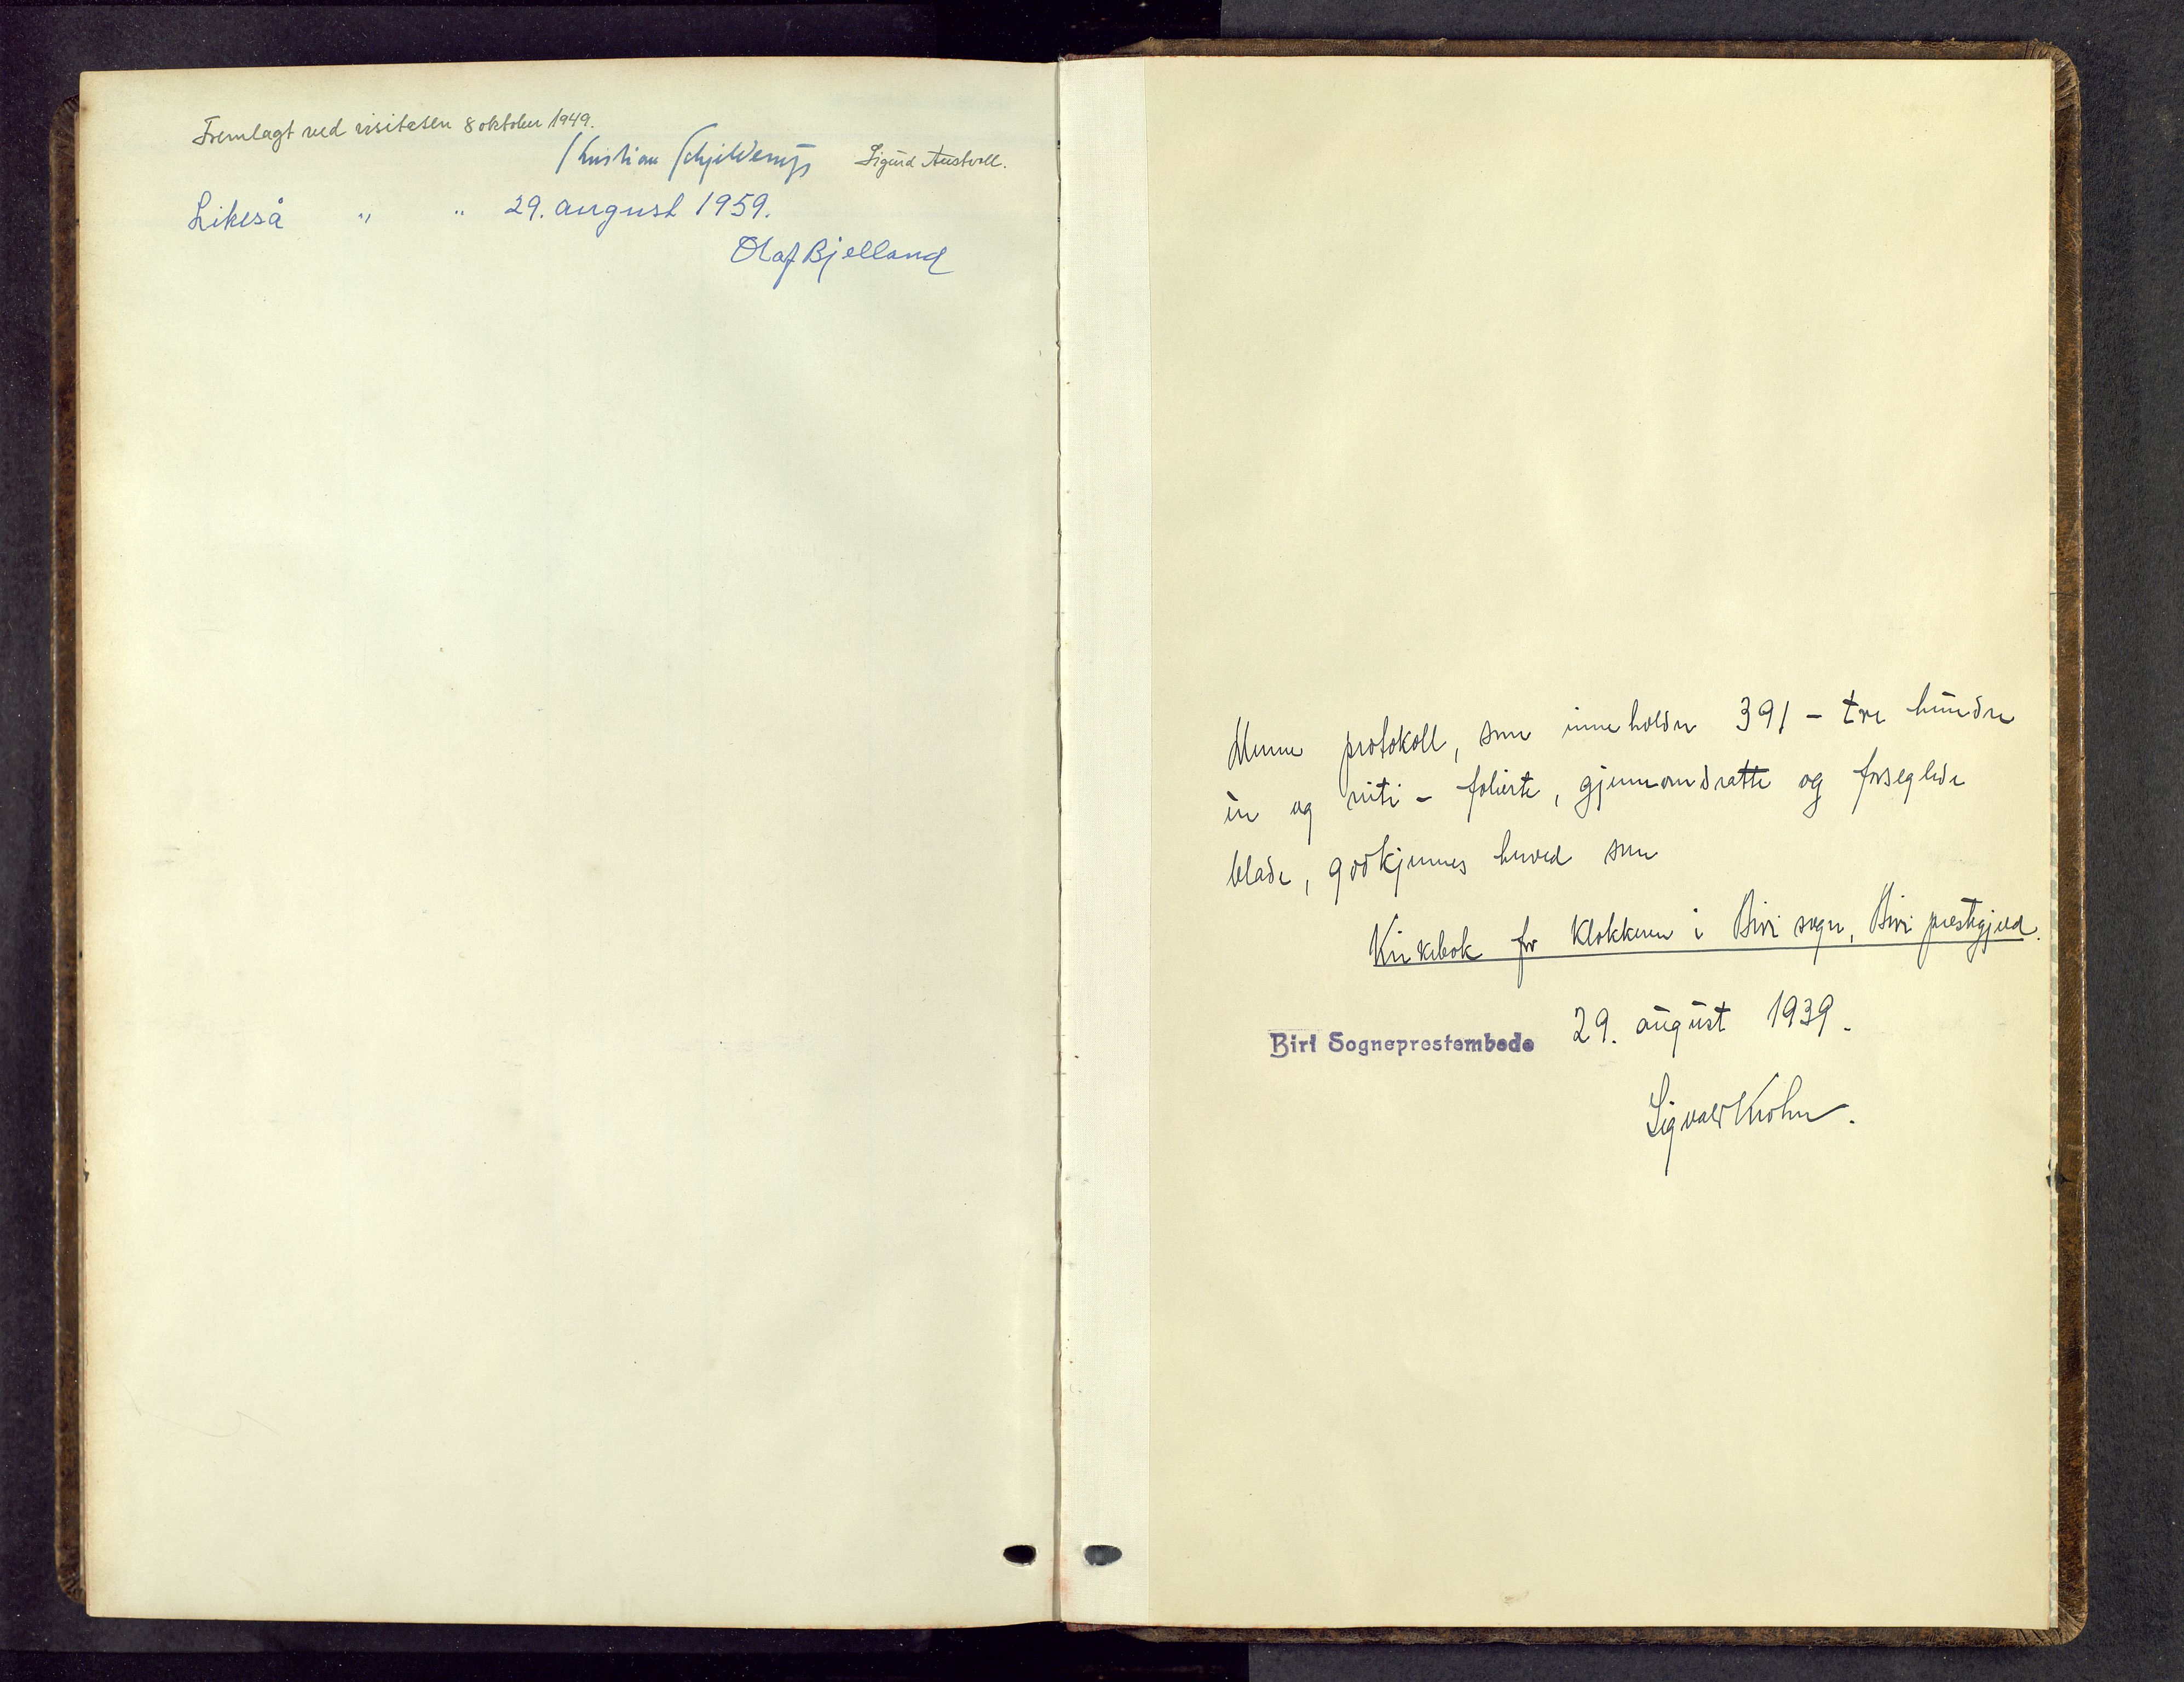 Fremlagt ved visitasen 8 oktober 1949.
Kristian Schjelderup Sigurd Austvoll.
Likeså " " 29. august 1959.
Olaf Bjelland
Denne protokoll, som inneholder 391 - tre hundre
én og niti - folierte, gjennomdratte og forseglede
blade, godkjennes herved som
Kirkebok for klokkeren i Biri sogn, Biri prestegjeld.
Biri Sogneprestembede 29. august 1939.
Sigvald Krohn.